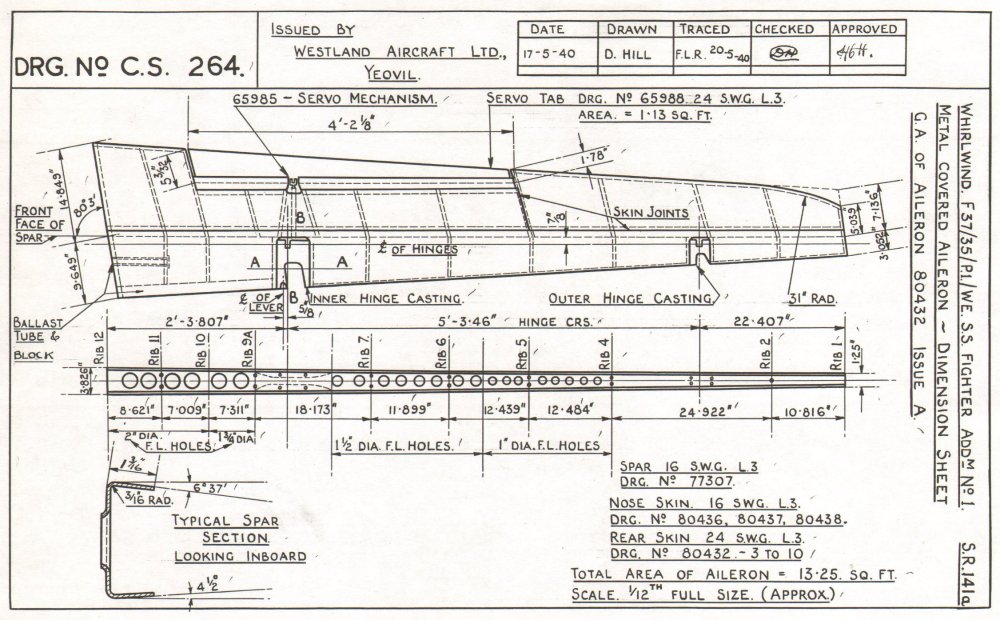 DRG. Nº C.S. 264.
ISSUED BY
WESTLAND AIRCRAFT LTD.,
YEOVIL.
DATE DRAWN TRACED CHECKED APPROVED
17-5-40 D. HILL F.L.R. 20-5-40
65985 - SERVO MECHANISM.
SERVO TAB DRG. Nº 65988 24 S.W.G. L.3.
AREA. = 1·13 SQ. FT.
4'-2⅛"
1·78"
5 3/32"
14·849"
80° 3'
FRONT
FACE OF
SPAR
9·649"
BALLAST
TUBE &
BLOCK
B
7/8"
SKIN JOINTS
℄ OF HINGES
A A
℄ OF
LEVER
B
5/8"
INNER HINGE CASTING.
OUTER HINGE CASTING.
31" RAD.
5·039"
7·136"
3·662"
2'-3·807"
5'-3·46" HINGE CRS.
22·407"
RIB 12
RIB 11
RIB 10
RIB 9A
RIB 7
RIB 6
RIB 5
RIB 4
RIB 2
RIB 1
3·826"
1·25"
8·621" 7·009" 7·311" 18·173" 11·899" 12·439" 12·484" 24·922" 10·816"
2" DIA. 1¾" DIA
F.L. HOLES
1½ DIA. F.L. HOLES
1" DIA. F.L. HOLES
1 3/16"
3/16 RAD.
6° 37'
4½°
TYPICAL SPAR
SECTION
LOOKING INBOARD
SPAR 16 S.W.G. L.3
DRG. Nº 77307.
NOSE SKIN. 16 SWG. L.3.
DRG. Nº 80436, 80437, 80438.
REAR SKIN 24 S.W.G. L.3.
DRG. Nº 80432.-3 TO 10
TOTAL AREA OF AILERON = 13·25. SQ. FT.
SCALE. 1/12TH FULL SIZE. (APPROX.)
WHIRLWIND. F37/35/P.I./WE. S.S. FIGHTER ADDM Nº 1.
METAL COVERED AILERON ~ DIMENSION SHEET
G.A. OF AILERON 80432 ISSUE A.
S.R.141a